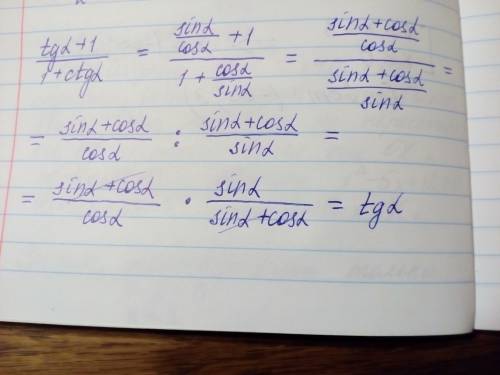 (tgα + 1)/(1 + ctgα) = (sinα/cosα + 1)/(1 + cosα/sinα) = ((sinα + cosα)/cosα)/((sinα + cosα)/sinα) =
= (sinα + cosα)/cosα : (sinα + cosα)/sinα =
= (sinα + cosα)/cosα · sinα/(sinα + cosα) = tgα